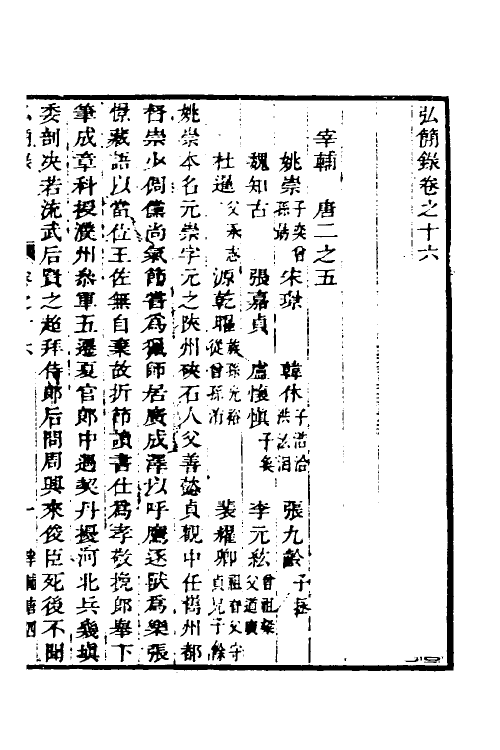 弘簡錄卷之十六
宰輔　唐二之五
姚崇子奕曾孫勗　宋璟　韓休子浩洽洪汯滉　張九齡子拯
魏知古　張嘉貞　盧懷慎子奐　李元紘曾祖粲父道廣
杜暹父承志　源乾曜從孫光裕曾孫洧　裴耀卿祖眘父守貞兄子餘
姚崇本名元崇字元之陝州硤石人父善懿貞觀中任巂州都
督崇少倜儻尚氣節嘗爲獵師居廣成澤以呼鷹逐獸爲樂張
憬藏語以當位王佐無自棄故折節讀書仕爲孝敬挽郎舉下
筆成章科授濮州參軍五遷夏官郎中遇契丹擾河北兵幾塡
委剖決若流武后賢之超拜侍郎后問周興來俊臣死後不聞